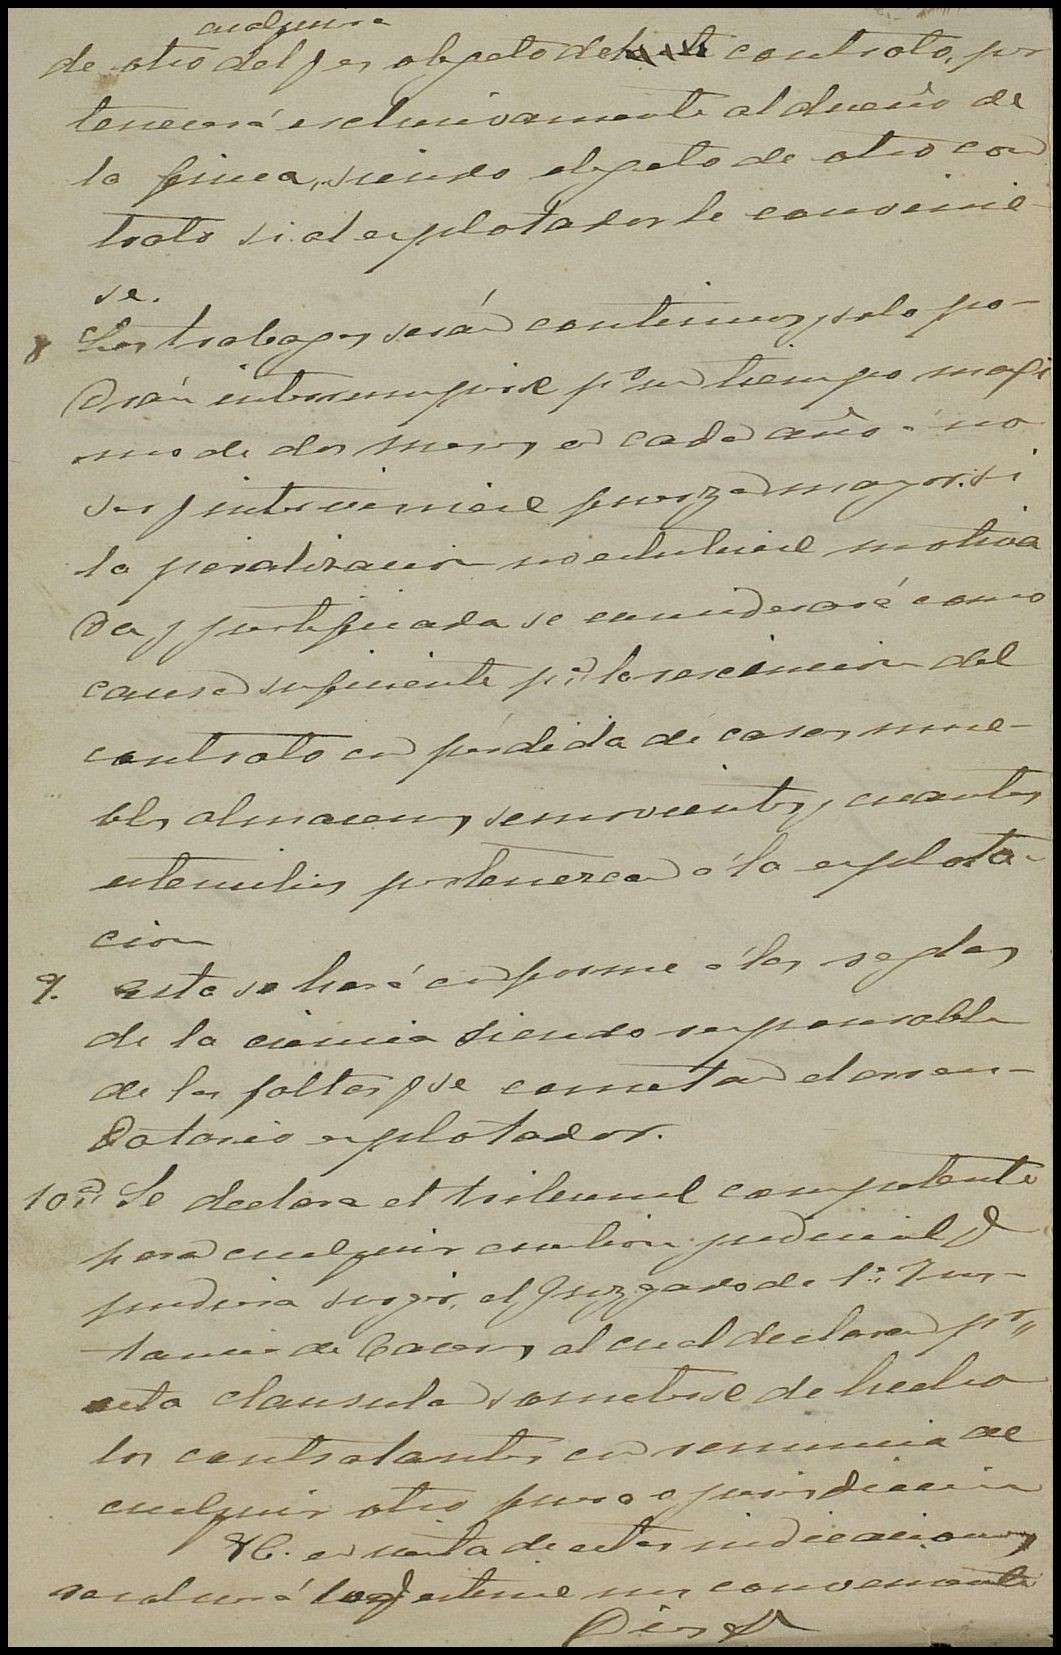 cualquiera
de otro del q es objeto de este contrato, per
tenecerá esclusivamente al dueño de
la finca, siendo objeto de otro con
trato si al explotador le convinie-
se.
8 Los trabajos serán continuos, solo po-
drán interrumpirse pr un tiempo maxi
mo de dos meses en cada año á no
ser q interviniese fuerza mayor. si
la paralizacion no estubiese motiva
da y justificada se considerará como
causa suficiente pa la rescision del
contrato con pérdida de casas, mue-
bles, almacenes, semovientes, y cuantos
utensilios pertenezcan á la explota-
cion
9. Esta se hará conforme á las reglas
de la ciencia siendo responsable
de las faltas q se cometan el arren-
datario explotador.
10a Se declara el tribunal competente
para cualquier cuestion judicial q
pudiera surgir, el Juzgado de 1a Ins-
tancia de Caceres, al cual declaran pr
esta clausula someterse de hecho
los contratantes con renuncia de
cualquier otro fuero o jurisdiccion
V. en vista de estas indicaciones,
resolverá lo q estime mas conveniente
Dios